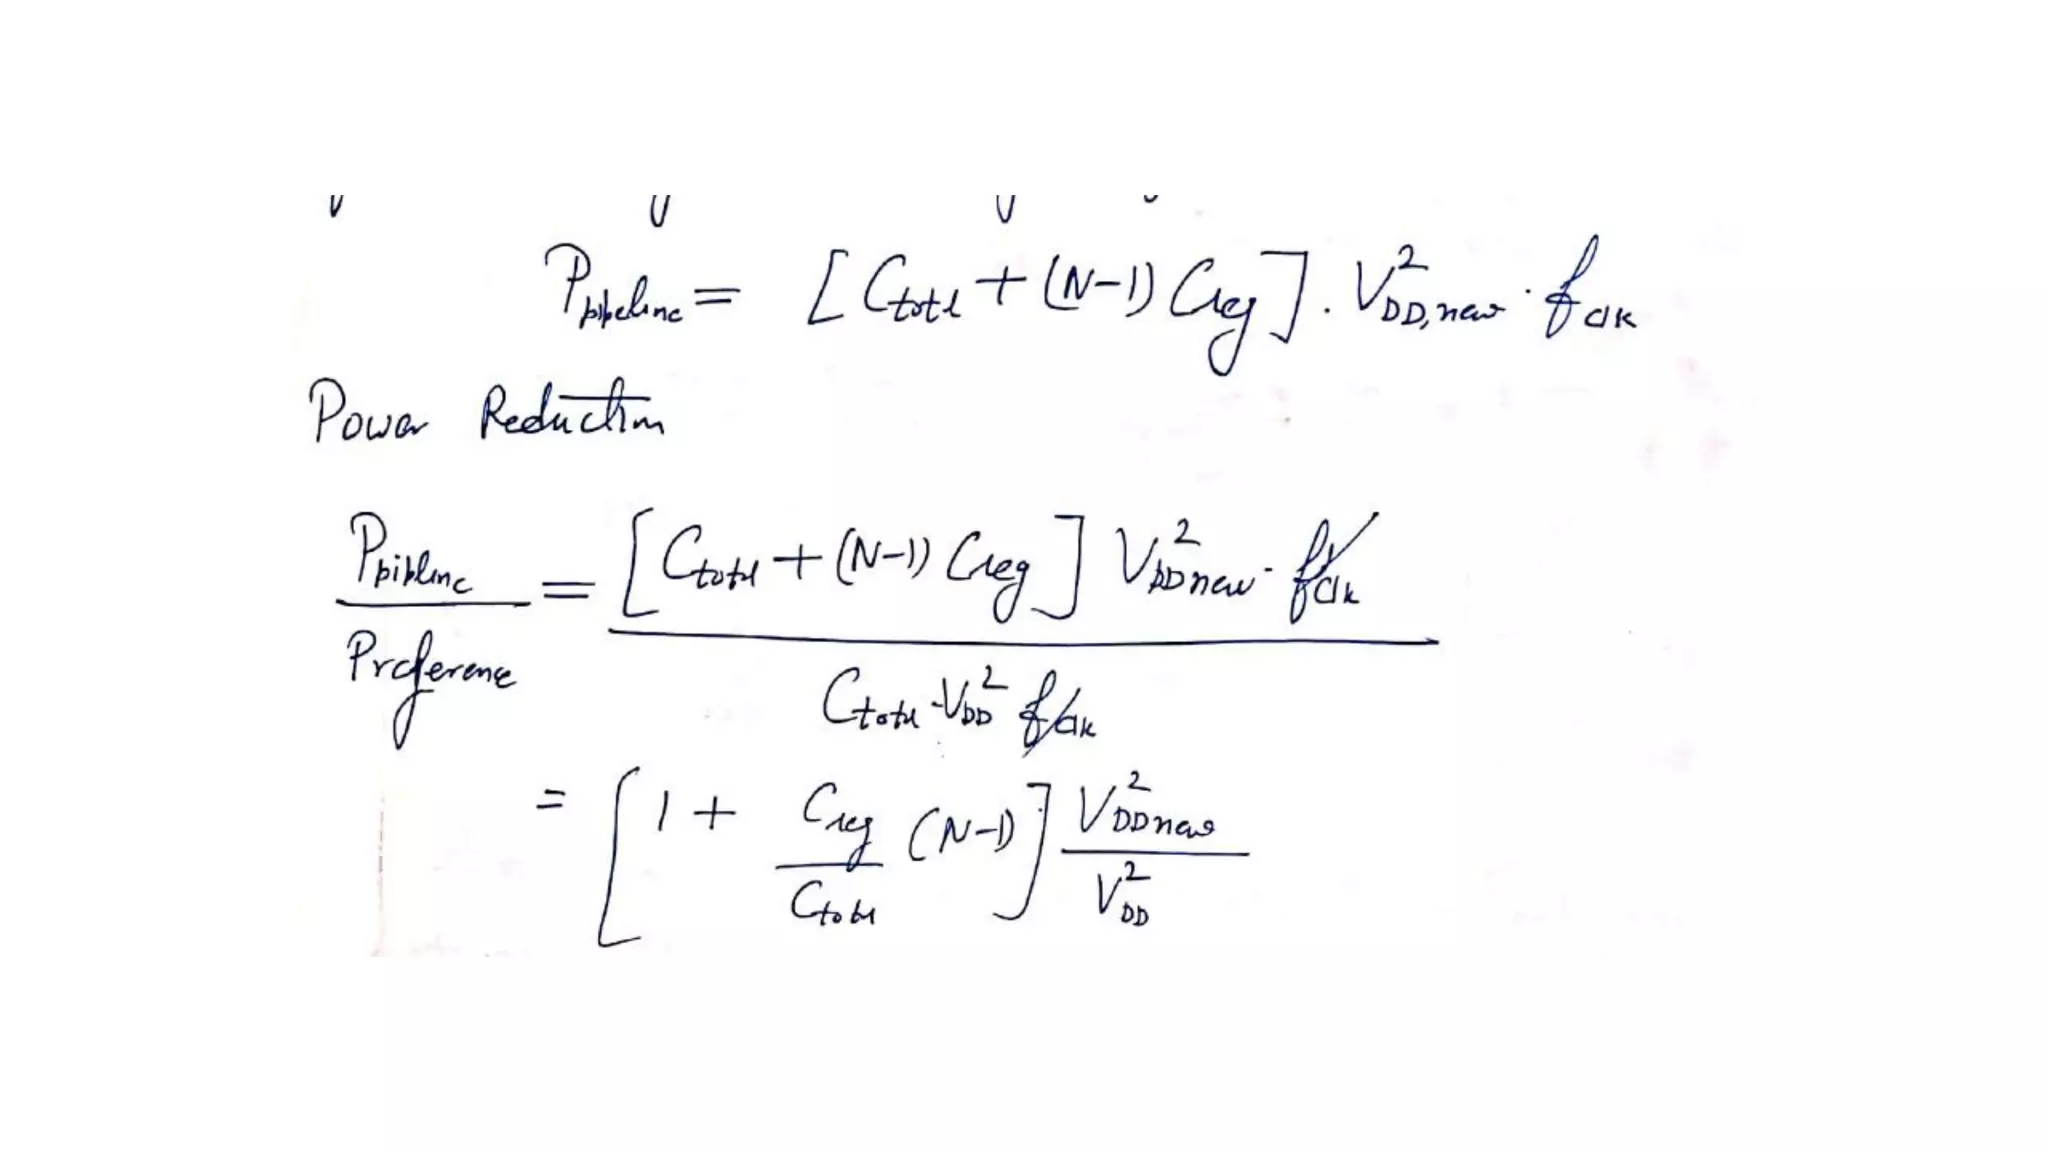 Ppipeline = [Ctotal + (N-1) Creg] . V²DD,new . fclk
Power Reduction
Ppipline / Preference = [Ctotal + (N-1) Creg] V²DDnew . fclk / Ctotal . VDD² fclk
= [1 + Creg/Ctotal (N-1)] V²DDnew / V²DD